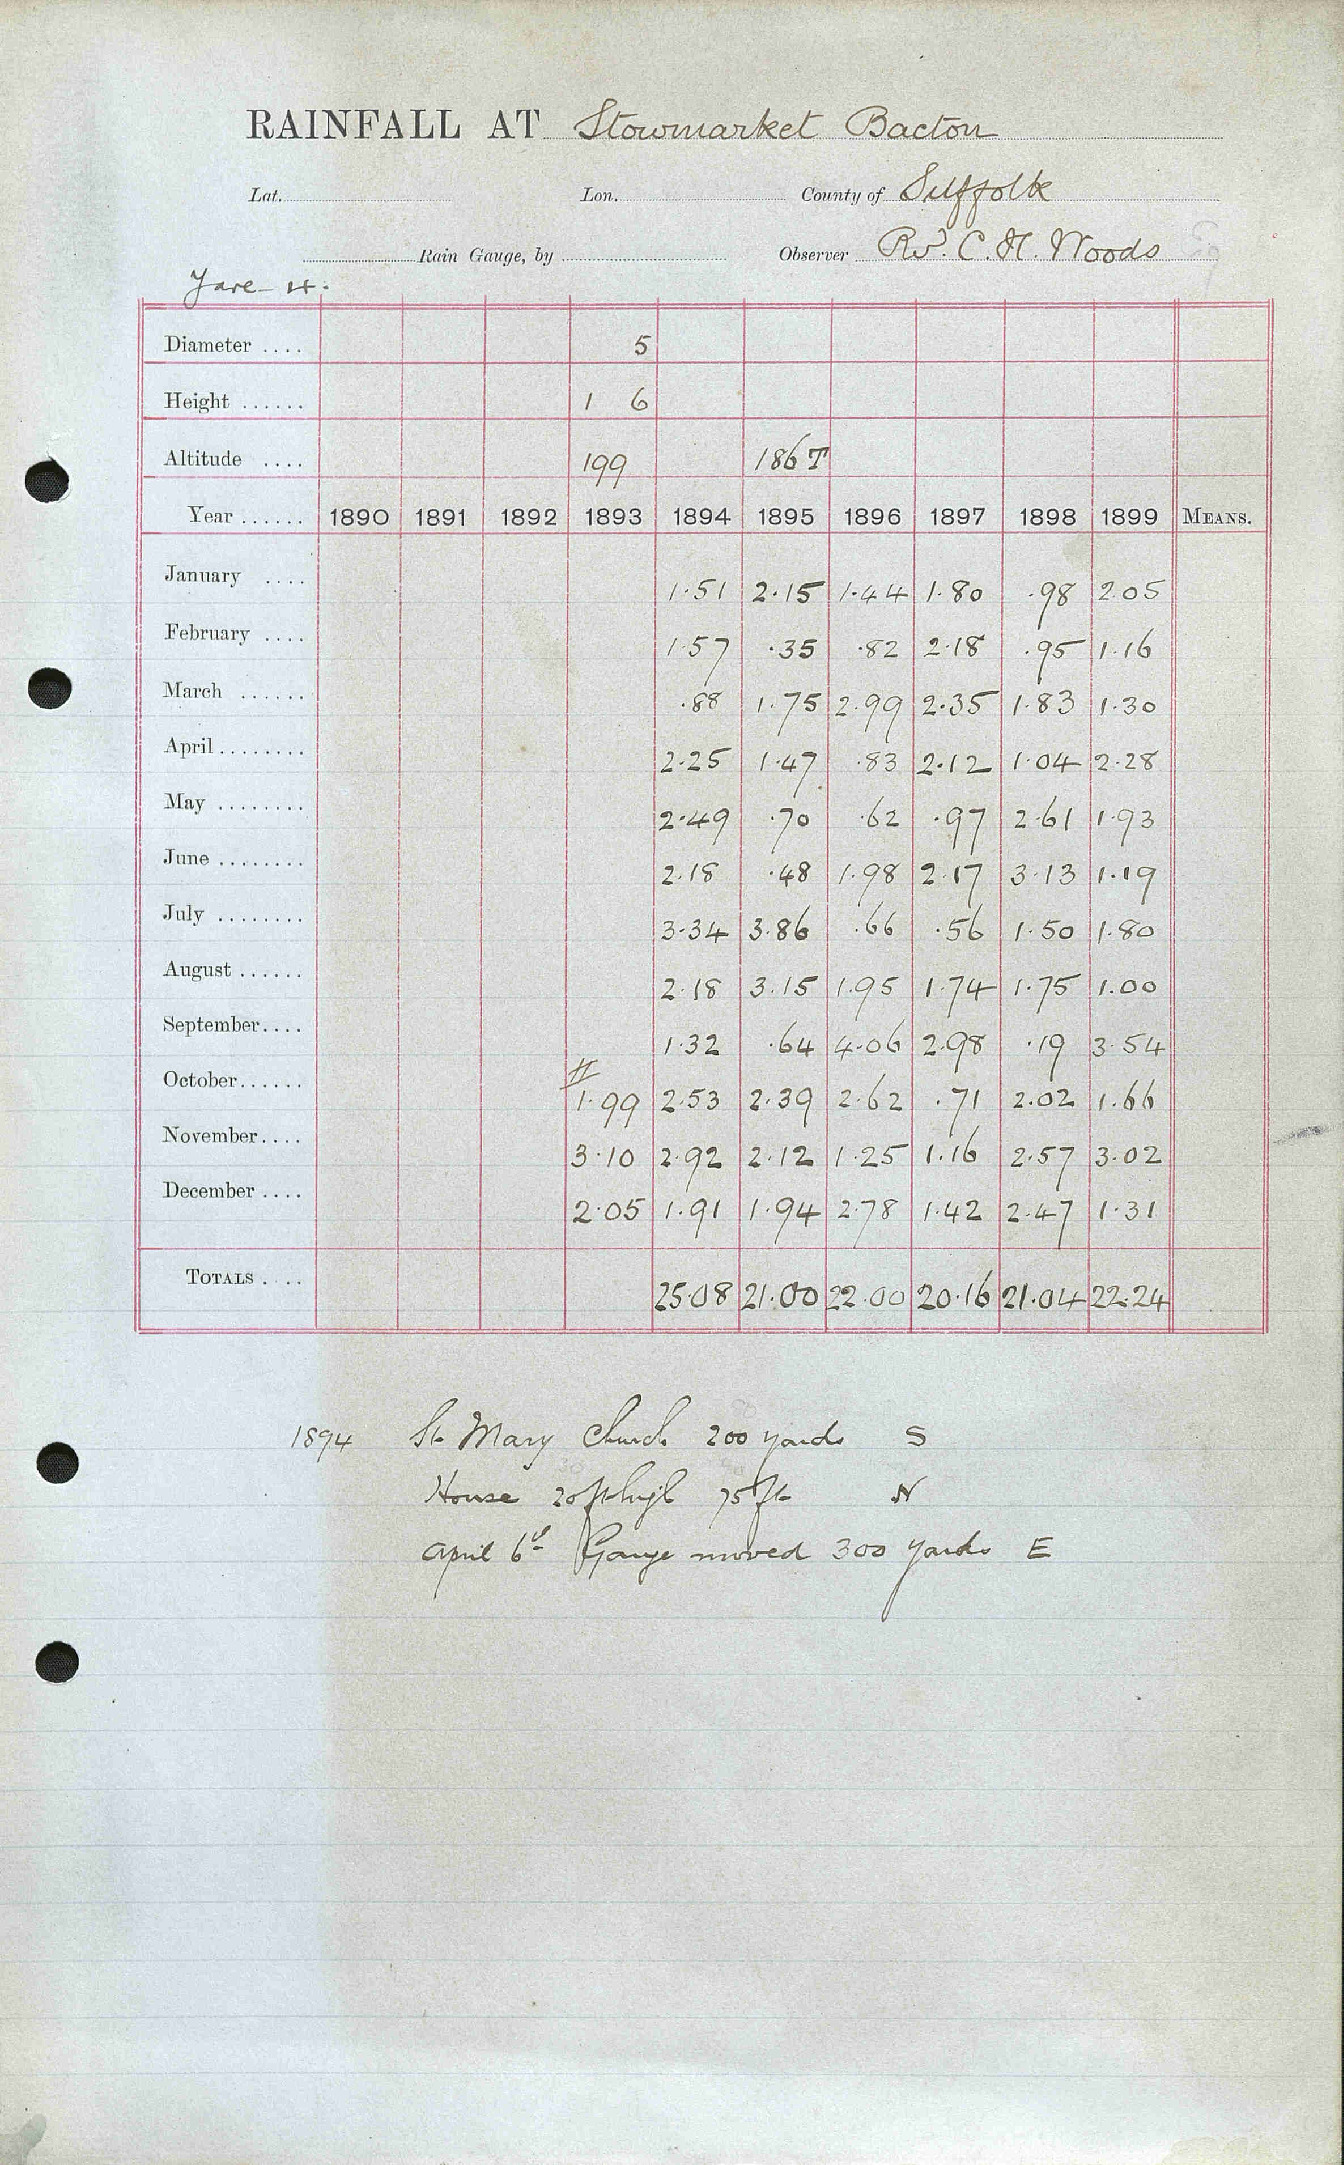 RAINFALL AT Stowmarket Bacton
Lat. Lon. County of Suffolk
Rain Gauge, by Observer Rev. C. H. Woods
Yare 4.
Diameter .... 5
Height ...... 1 6
Altitude .... 199 186 T
Year ...... 1890 1891 1892 1893 1894 1895 1896 1897 1898 1899 MEANS.
January .... 1.51 2.15 1.44 1.80 .98 2.05
February .... 1.57 .35 .82 2.18 .95 1.16
March ...... .88 1.75 2.99 2.35 1.83 1.30
April ........ 2.25 1.47 .83 2.12 1.04 2.28
May ........ 2.49 .70 .62 .97 2.61 1.93
June ........ 2.18 .48 1.98 2.17 3.13 1.19
July ........ 3.34 3.86 .66 .56 1.50 1.80
August ...... 2.18 3.15 1.95 1.74 1.75 1.00
September .... 1.32 .64 4.06 2.98 .19 3.54
October ...... 1.99 2.53 2.39 2.62 .71 2.02 1.66
November .... 3.10 2.92 2.12 1.25 1.16 2.57 3.02
December .... 2.05 1.91 1.94 2.78 1.42 2.47 1.31
TOTALS .... 25.08 21.00 22.00 20.16 21.04 22.24
1894 St. Mary Church 200 yards S
House 20 ft high 75 ft N
April 6th Gauge moved 300 yards E